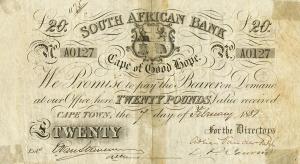 £20: SOUTH AFRICAN BANK £20:
No A0127 No A0127
Cape of Good Hope.
We Promise to pay the Bearer on Demand
at our Office here TWENTY POUNDS, Value received
CAPE TOWN, the day of February
£TWENTY For the Directors
Entd.